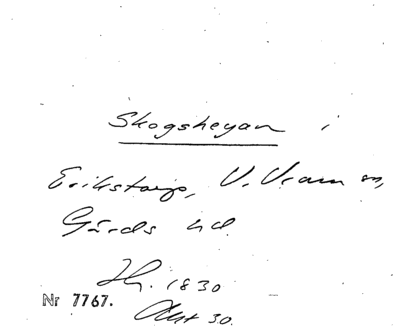 Skogsheyan i
Erikstorp, V. Vram sn,
Gärds hd.
1830
Nr 7767. Akt 30.